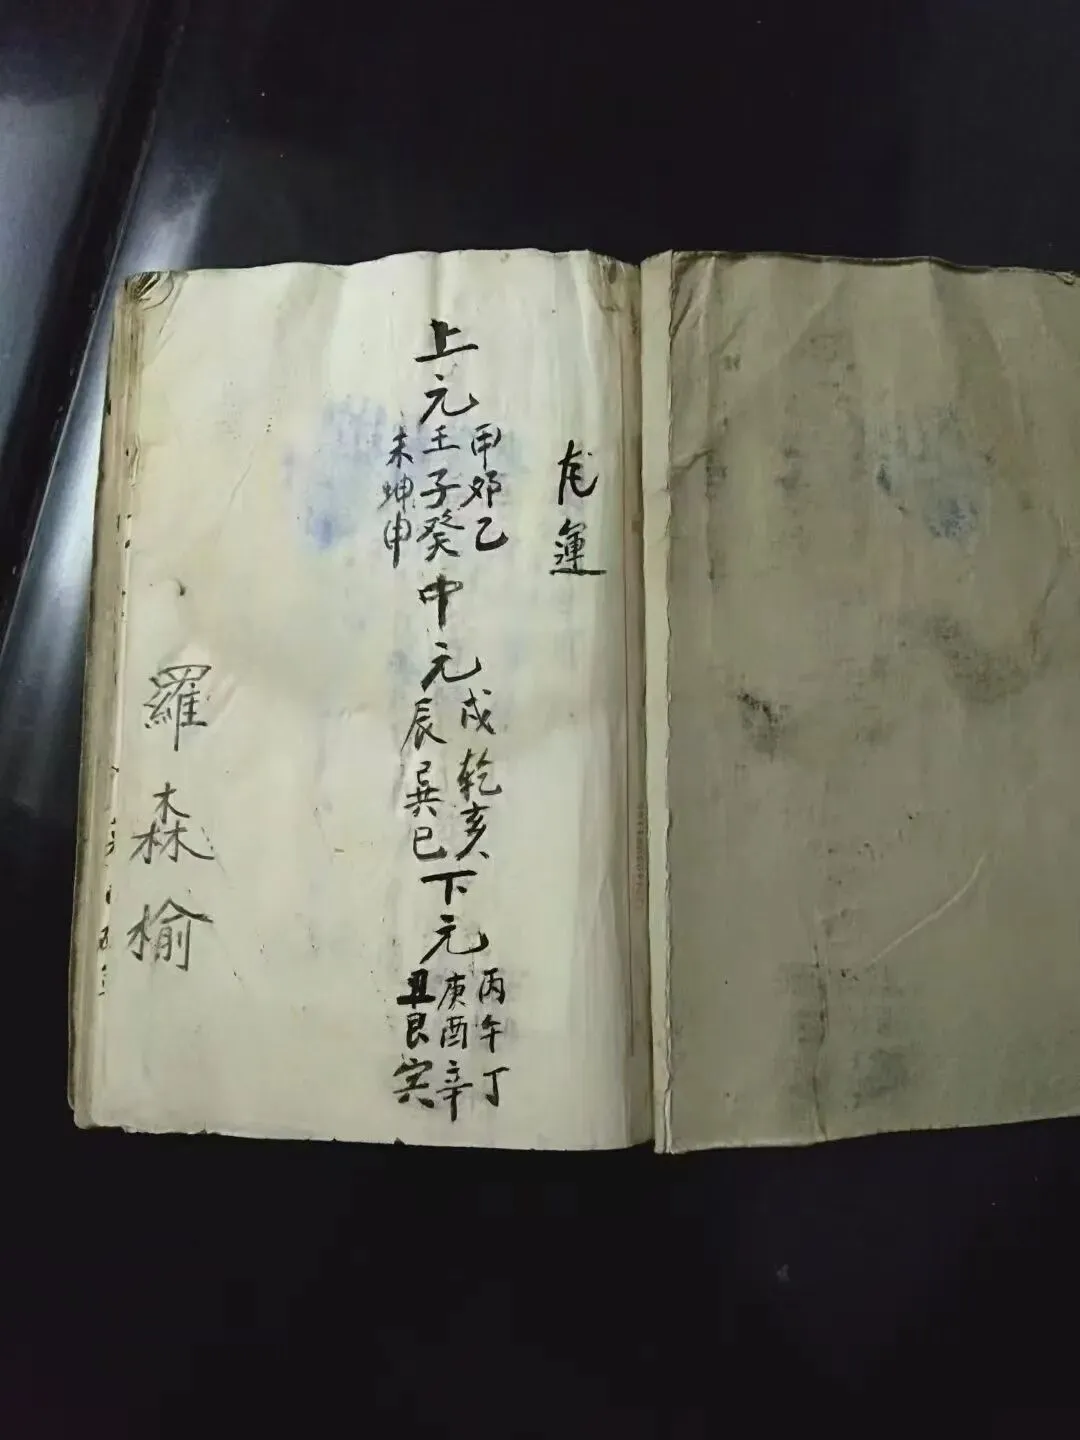 龙運
上元
甲卯乙
壬子癸
未坤申
中元
戌乾亥
辰巽巳
下元
丙午丁
庚酉辛
丑艮寅
羅森榆